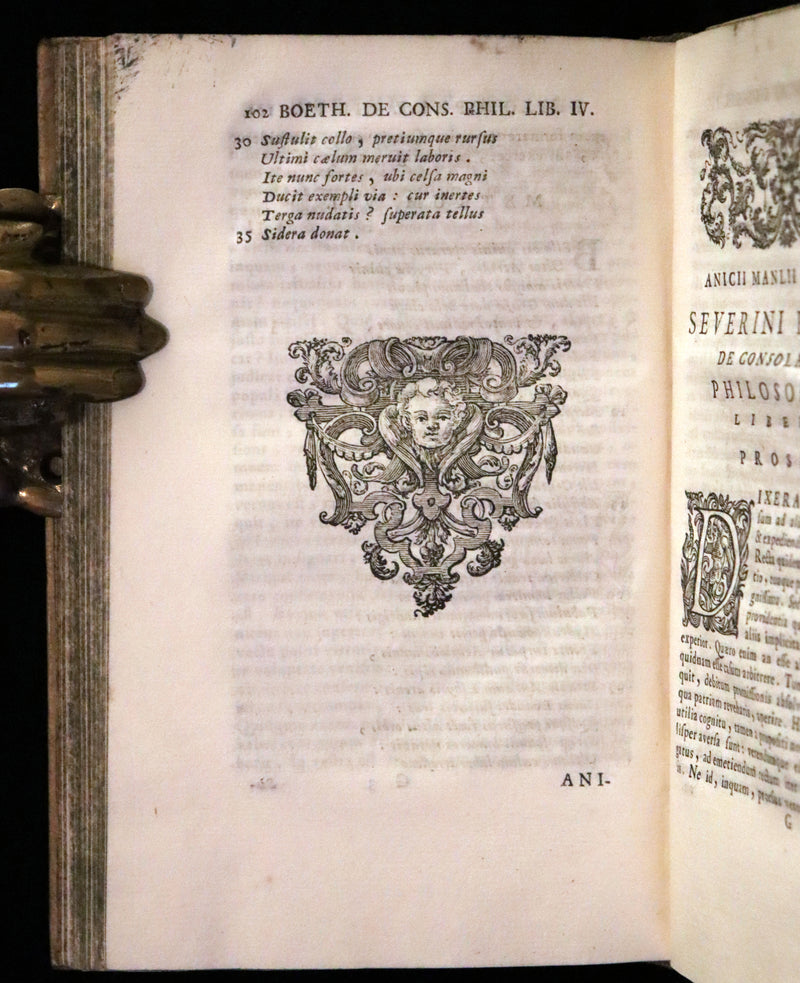 102 BOETH. DE CONS. PHIL. LIB. IV.
30 Suſtulit collo , pretiumque rurſus
Ultimi cælum meruit laboris .
Ite nunc fortes , ubi celſa magni
Ducit exempli via : cur inertes
Terga nudatis ? ſuperata tellus
35 Sidera donat .
ANI-
ANICII MANLII
SEVERINI
DE CONSOLA
PHILOSO
LIBE
PROS
DIXERA
ſum ad
& expedien
Recta quidem
tio,
providentia
aliis implicita
expetior. Quæro enim an eſſe
quidnam eſſe caſum arbitrere. Tum
quit, debitum promiſſionis abſol
qua patriam reveharis, aperire. H
utilia cognitu, tamen a propoſiti
liſper averſa ſunt: verendumque
gatus, ad emetiendum rectum
Ne id, inquam, prorſus
G